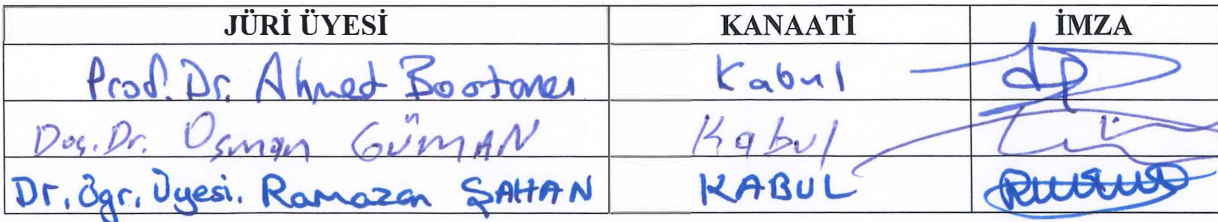 JÜRİ ÜYESİ KANAATİ İMZA
Prof. Dr. Ahmed Bostancı Kabul
Doç. Dr. Osman GÜMAN Kabul
Dr. Öğr. Üyesi. Ramazan ŞAHAN KABUL